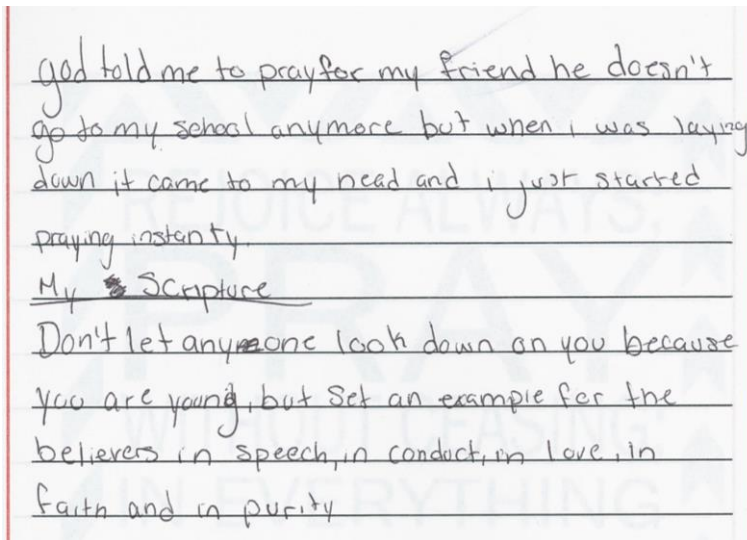 god told me to pray for my friend he doesn't
go to my school anymore but when i was laying
down it came to my head and i just started
praying instanty.
My Scripture
Don't let anyone look down on you because
you are young, but set an example for the
believers in speech, in conduct, in love, in
faith and in purity
REJOICE ALWAYS,
PRAY
WITHOUT CEASING,
IN EVERYTHING